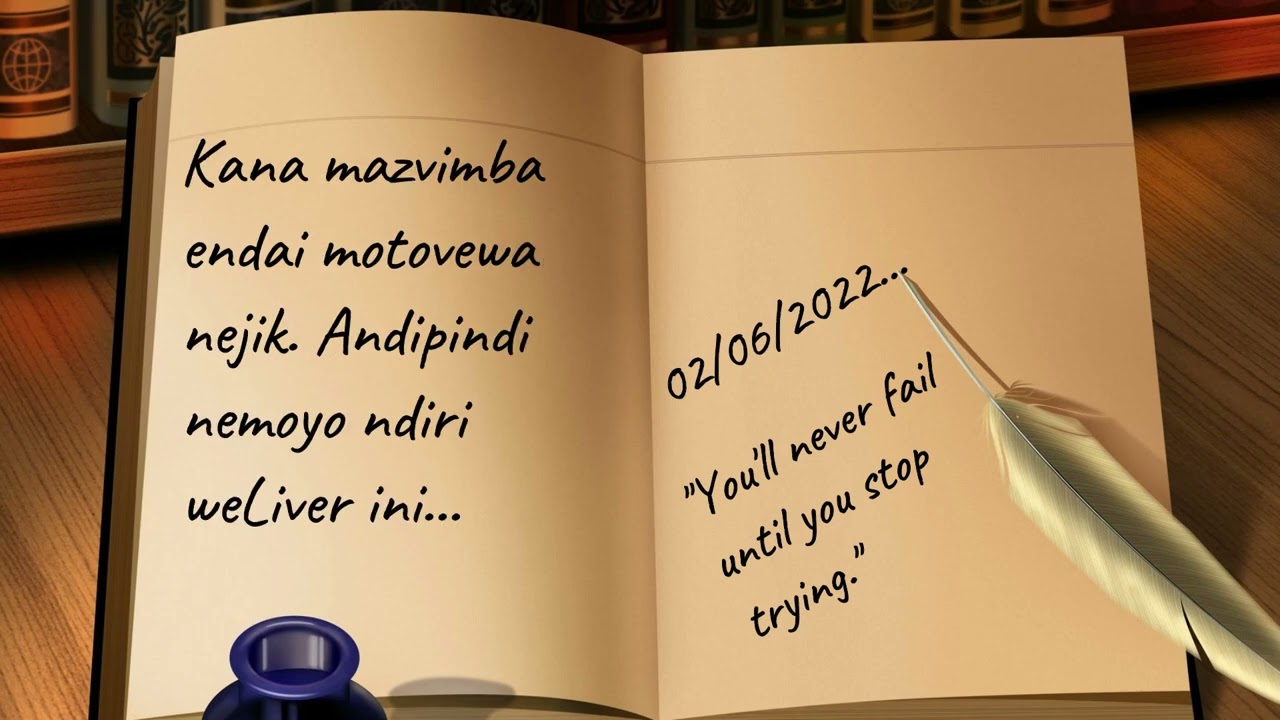 Kana mazvimba
endai motovewa
nejik. Andipindi
nemoyo ndiri
weLiver ini...
02/06/2022...
"You'll never fail
until you stop
trying."